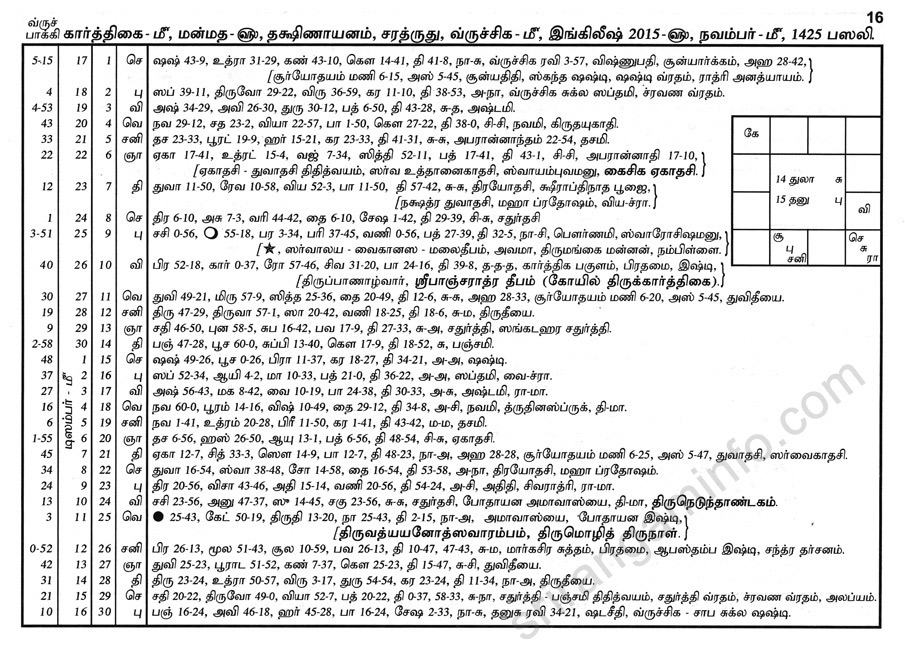 16
வ்ருச்
பாக்கி கார்த்திகை - மீ, மன்மத - ஹ, தக்ஷிணாயனம், சரத்ருது, வ்ருச்சிக - மீ, இங்கிலீஷ் 2015 - ஹ, நவம்பர் - மீ, 1425 பஸலி.
5-15 17 1 செ ஷஷ் 43-9, உத்ரா 31-29, கண் 43-10, கௌ 14-41, தி 41-8, நா-சு, வ்ருச்சிக ரவி 3-57, விஷ்ணுபதி, சூன்யார்க்கம், அஹ 28-42,
[சூர்யோதயம் மணி 6-15, அஸ் 5-45, சூன்யதிதி, ஸ்கந்த ஷஷ்டி, ஷஷ்டி வ்ரதம், ராத்ரி அனத்யாயம்.
4 18 2 பு ஸப் 39-11, திருவோ 29-22, விரு 36-59, கர 11-10, தி 38-53, அ-நா, வ்ருச்சிக சுக்ல ஸப்தமி, ச்ரவண வ்ரதம்.
4-53 19 3 வி அஷ் 34-29, அவி 26-30, துரு 30-12, பத் 6-50, தி 43-28, சு-த, அஷ்டமி.
43 20 4 வெ நவ 29-12, சத 23-2, வியா 22-57, பா 1-50, கௌ 27-22, தி 38-0, சி-சி, நவமி, கிருதயுகாதி.
33 21 5 சனி தச 23-33, பூரட் 19-9, ஹர் 15-21, கர 23-33, தி 41-31, சு-சு, அபரான்னாந்தம் 22-54, தசமி.
22 22 6 ஞா ஏகா 17-41, உத்ரட் 15-4, வஜ் 7-34, ஸித்தி 52-11, பத் 17-41, தி 43-1, சி-சி, அபரான்னாதி 17-10,
[ஏகாதசி - துவாதசி திதித்வயம், ஸர்வ உத்தானைகாதசி, ஸ்வாயம்புவமனு, கைசிக ஏகாதசி.
12 23 7 தி துவா 11-50, ரேவ 10-58, விய 52-3, பா 11-50, தி 57-42, சு-சு, திரயோதசி, க்ஷீராப்திநாத பூஜை,
[நக்ஷத்ர துவாதசி, மஹா ப்ரதோஷம், விய-ச்ரா.
1 24 8 செ திர 6-10, அசு 7-3, வரி 44-42, தை 6-10, சேஷ 1-42, தி 29-39, சி-சு, சதுர்தசி
3-51 25 9 பு சசி 0-56, 55-18, பர 3-34, பரி 37-45, வணி 0-56, பத் 27-39, தி 32-5, நா-சி, பௌர்ணமி, ஸ்வாரோசிஷமனு,
[★, ஸர்வாலய - வைகானஸ - மலைதீபம், அவமா, திருமங்கை மன்னன், நம்பிள்ளை.
40 26 10 வி பிர 52-18, கார் 0-37, ரோ 57-46, சிவ 31-20, பா 24-16, தி 39-8, த-த-த, கார்த்திக பகுளம், பிரதமை, இஷ்டி,
[திருப்பாணாழ்வார், ஸ்ரீபாஞ்சராத்ர தீபம் (கோயில் திருக்கார்த்திகை).
30 27 11 வெ துவி 49-21, மிரு 57-9, ஸித்த 25-36, தை 20-49, தி 12-6, சு-சு, அஹ 28-33, சூர்யோதயம் மணி 6-20, அஸ் 5-45, துவிதீயை.
19 28 12 சனி திரு 47-29, திருவா 57-1, ஸா 20-42, வணி 18-25, தி 18-6, சு-ம, திருதீயை.
9 29 13 ஞா சதி 46-50, புன 58-5, சுப 16-42, பவ 17-9, தி 27-33, சு-அ, சதுர்த்தி, ஸங்கடஹர சதுர்த்தி.
2-58 30 14 தி பஞ் 47-28, பூச 60-0, சுப்பி 13-40, கௌ 17-9, தி 18-52, சு, பஞ்சமி.
48 1 15 செ ஷஷ் 49-26, பூச 0-26, பிரா 11-37, கர 18-27, தி 34-21, அ-அ, ஷஷ்டி.
டிஸம்பர் - மீ
37 2 16 பு ஸப் 52-34, ஆயி 4-2, மா 10-33, பத் 21-0, தி 36-22, அ-அ, ஸப்தமி, வை-ச்ரா.
27 3 17 வி அஷ் 56-43, மக 8-42, வை 10-19, பா 24-38, தி 30-33, அ-சு, அஷ்டமி, ரா-மா.
16 4 18 வெ நவ 60-0, பூரம் 14-16, விஷ் 10-49, தை 29-12, தி 34-8, அ-சி, நவமி, த்ருதினஸ்ப்ருக், தி-மா.
6 5 19 சனி நவ 1-41, உத்ரம் 20-28, பிரீ 11-50, கர 1-41, தி 43-42, ம-ம, தசமி.
1-55 6 20 ஞா தச 6-56, ஹஸ் 26-50, ஆயு 13-1, பத் 6-56, தி 48-54, சி-சு, ஏகாதசி.
45 7 21 தி ஏகா 12-7, சித் 3-33, ஸௌ 14-9, பா 12-7, தி 48-23, நா-அ, அஹ 28-28, சூர்யோதயம் மணி 6-25, அஸ் 5-47, துவாதசி, ஸர்வைகாதசி.
34 8 22 செ துவா 16-54, ஸ்வா 38-48, சோ 14-58, தை 16-54, தி 53-58, அ-நா, திரயோதசி, மஹா ப்ரதோஷம்.
24 9 23 பு திர 20-56, விசா 43-46, அதி 15-14, வணி 20-56, தி 54-24, அ-சி, அதிதி, சிவராத்ரி, ரா-மா.
13 10 24 வி சசி 23-56, அனு 47-37, ஸு 14-45, சகு 23-56, சு-சு, சதுர்தசி, போதாயன அமாவாஸ்யை, தி-மா, திருநெடுந்தாண்டகம்.
3 11 25 வெ ● 25-43, கேட் 50-19, திருதி 13-20, நா 25-43, தி 2-15, நா-அ, அமாவாஸ்யை, போதாயன இஷ்டி,
[திருவத்யயனோத்ஸவாரம்பம், திருமொழித் திருநாள்.
0-52 12 26 சனி பிர 26-13, மூல 51-43, சூல 10-59, பவ 26-13, தி 10-47, 47-43, சு-ம, மார்கசிர சுத்தம், பிரதமை, ஆபஸ்தம்ப இஷ்டி, சந்த்ர தர்சனம்.
42 13 27 ஞா துவி 25-23, பூராட 51-52, கண் 7-37, கௌ 25-23, தி 15-47, சு-சி, துவிதீயை.
31 14 28 தி திரு 23-24, உத்ரா 50-57, விரு 3-17, துரு 54-54, கர 23-24, தி 11-34, நா-அ, திருதீயை.
21 15 29 செ சதி 20-22, திருவோ 49-0, வியா 52-7, பத் 20-22, தி 0-37, 58-33, சு-நா, சதுர்த்தி - பஞ்சமி திதித்வயம், சதுர்த்தி வ்ரதம், ச்ரவண வ்ரதம், அலப்யம்.
10 16 30 பு பஞ் 16-24, அவி 46-18, ஹர் 45-28, பா 16-24, சேஷ 2-33, நா-சு, தனுசு ரவி 34-21, ஷடசீதி, வ்ருச்சிக - சாப சுக்ல ஷஷ்டி.
கே
14 துலா சு
15 தனு பு
வி
சூ
பு
சனி
செ
சு
ரா
srirangaminfo.com